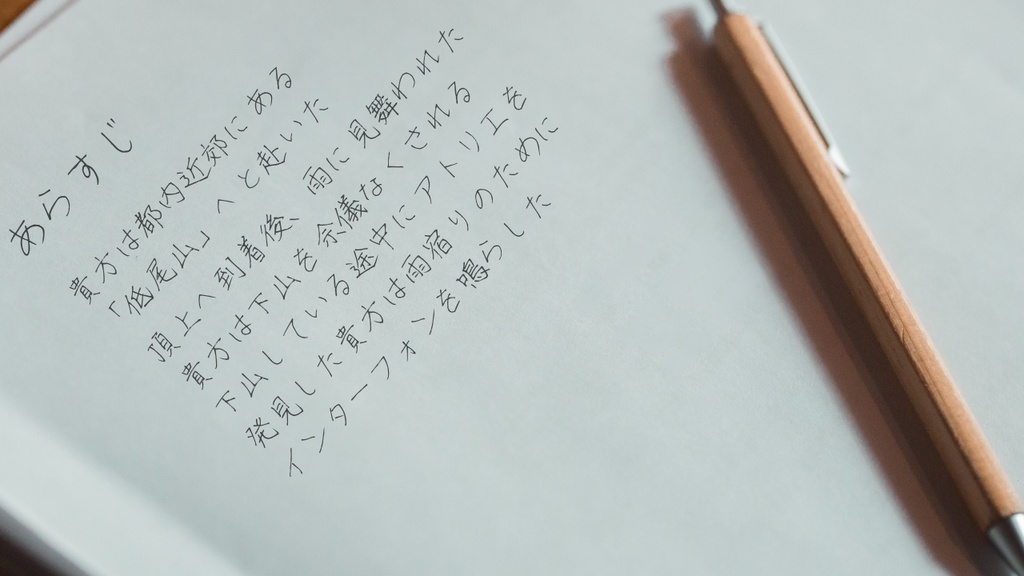 あらすじ
貴方は都内近郊にある
「低尾山」へと赴いた
頂上へ到着後、雨に見舞われた
貴方は下山を余儀なくされる
下山している途中にアトリエを
発見した貴方は雨宿りのために
インターフォンを鳴らした